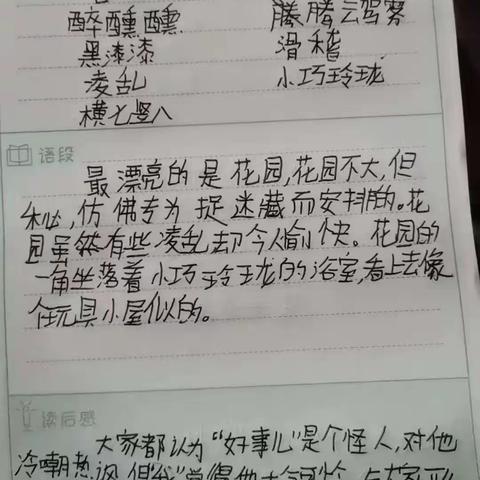 醉醺醺 腾腾云驾雾
黑漆漆 滑稽
凌乱 小巧玲珑
横七竖八
语段
最漂亮的是花园,花园不大,但
私,仿佛专为捉迷藏而安排的。花
园虽然有些凌乱却令人愉快。花园的
一角坐落着小巧玲珑的浴室,看上去像
个玩具小屋似的。
读后感
大家都认为“好事儿”是个怪人,对他
冷嘲热讽,但我觉得他